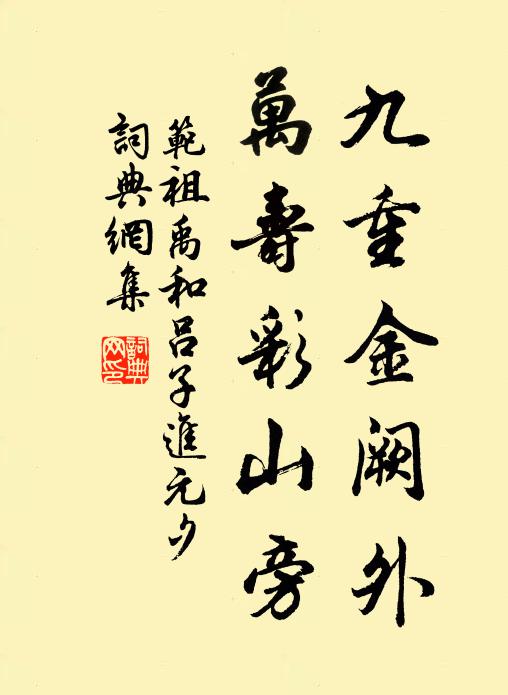 九重金闕外
萬壽彩山旁
範祖禹和呂子進元夕
詞典網集
詞典網印